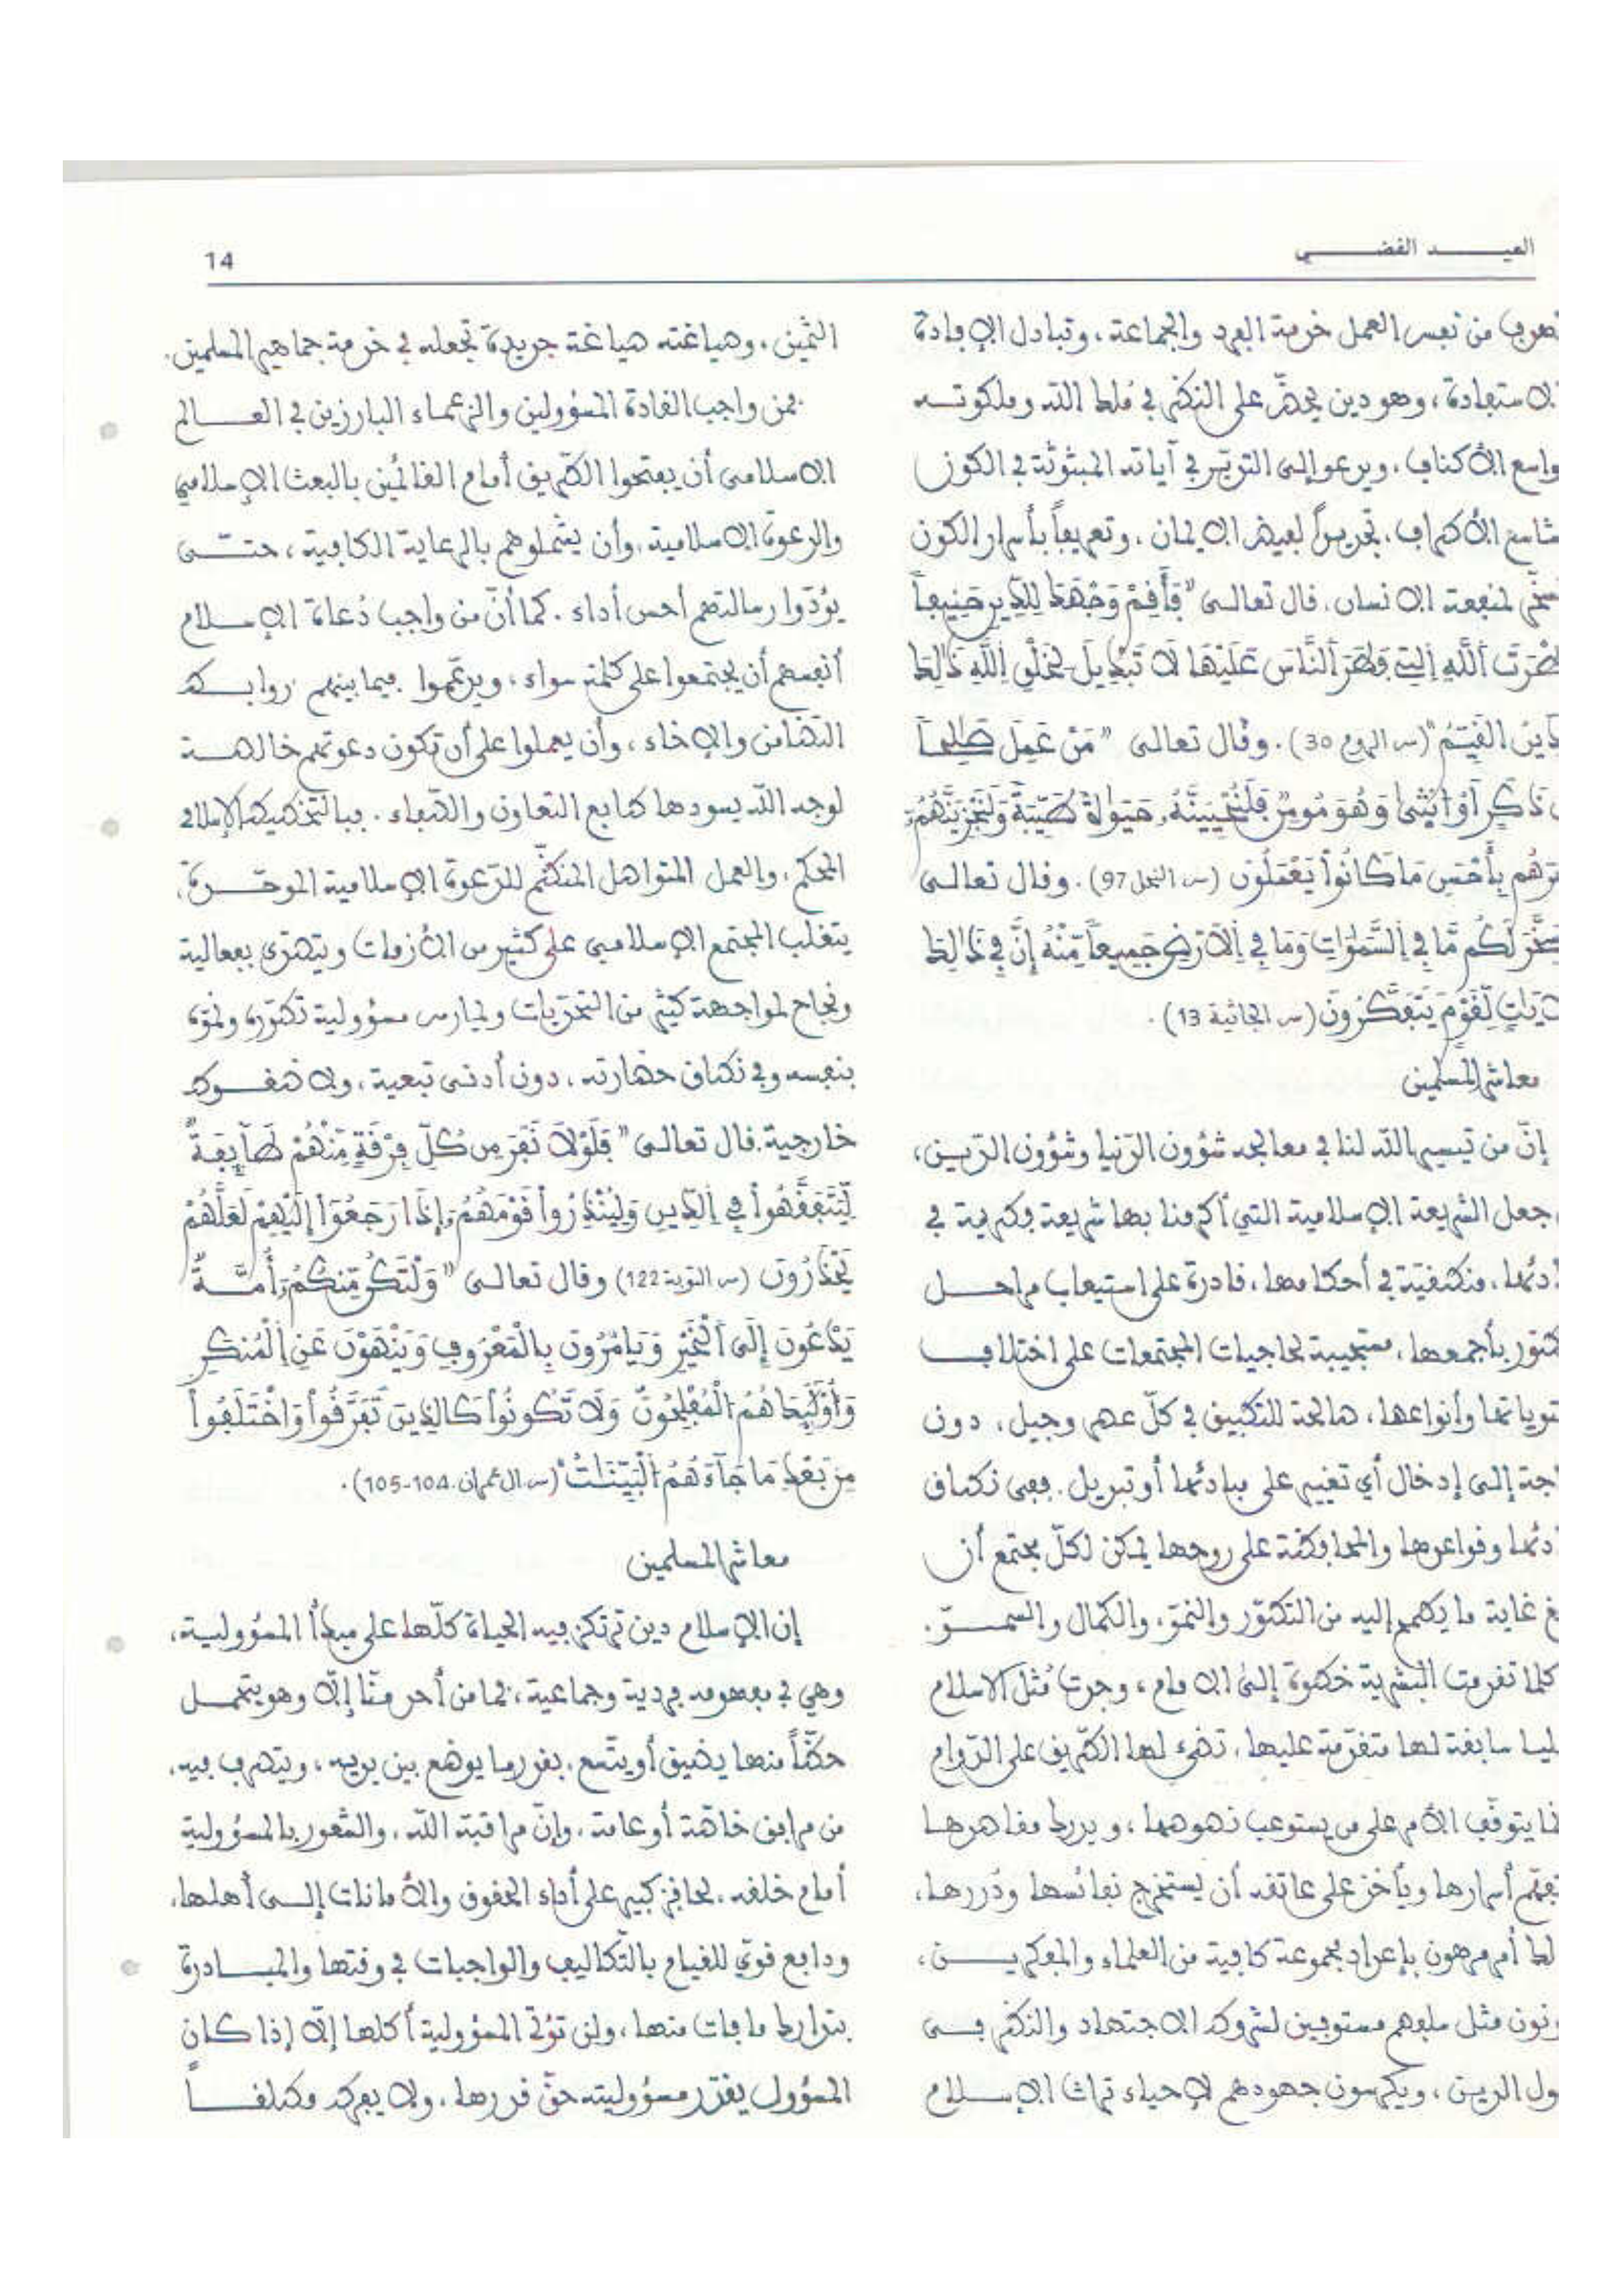 العيد الفضي
14
من نفس العمل خدمة الفرد والجماعة، وتبادل الإفادة
الاستفادة، وهو دين يحضّ على النظر في ملك الله وملكوته
واسع الأكناف، ويدعو إلى التدبّر في آياته المبثوثة في الكون
شاسع الأطراف، تجديداً لفيض الإيمان، وتعريفاً بأسرار الكون
لمنفعة الإنسان، قال تعالى "فَأَقِمْ وَجْهَكَ لِلدِّينِ حَنِيفاً
فِطْرَتَ اَللَّهِ اِلتِي فَطَرَ اَلنَّاسَ عَلَيْهَا لاَ تَبْدِيلَ لِخَلْقِ اِللَّهِ ذَالِكَ
اَلْقَيِّمُ" (س. الروم 30). وقال تعالى "مَنْ عَمِلَ صَالِحاً
ذَكَرٍ اَوُ انثى وَهُوَ مُومِنٌ فَلَنُحْيِيَنَّهُ حَيَوٰةً طَيِّبَةً وَلَنَجْزِيَنَّهُمُ
بِأَحْسَنِ مَا كَانُواْ يَعْمَلُونَ (س. النحل 97). وقال تعالى
لَكُم مَّا فِي اِلسَّمَٰوَاتِ وَمَا فِي اِلاَرْضِ جَمِيعاً مِّنْهُ إِنَّ فِي ذَالِكَ
لِّقَوْمٍ يَتَفَكَّرُونَ (س. الجاثية 13).
معاشر المسلمين
إنّ من تيسير الله لنا في معالجة شؤون الدّنيا وشؤون الدّين،
جعل الشريعة الإسلامية التي أكرمنا بها شريعة فطرية في
منطقيّة في أحكامها، قادرة على استيعاب مراحل
بأجمعها، مستجيبة لحاجيات المجتمعات على اختلاف
وأنواعها، صالحة للتطبيق في كلّ عصر وجيل، دون
إلى إدخال أي تغيير على مبادئها أو تبديل. ففي نطاق
وقواعدها والمحافظة على روحها يمكن لكلّ مجتمع أن
غاية ما يطمح إليه من التطوّر والنموّ، والكمال والسموّ.
كلما تقدمت البشرية خطوة إلى الأمام، وجدت مُثل الاسلام
سابقة لها متقدّمة عليها، تضيء لها الطّريق على الدّوام
يتوقف الأمر على من يستوعب نصوصها، ويدرك مقاصدها
أسرارها ويأخذ على عاتقه أن يستخرج نفائسها ودُررها،
أمر مرهون بإعداد مجموعة كافية من العلماء والمفكرين،
مثل سلفهم مستوفين لشروط الاجتهاد والنظر في
الدين، ويكرسون جهودهم لإحياء تراث الإسلام
الثمين، وصياغته صياغة جديدة تجعله في خدمة جماهير المسلمين.
فمن واجب القادة المسؤولين والزعماء البارزين في العالم
الاسلامي أن يفتحوا الطّريق أمام القائمين بالبعث الإسلامي
والدعوة الإسلامية، وأن يشملوهم بالرعاية الكافية، حتى
يؤدّوا رسالتهم أحسن أداء. كما أنّ من واجب دُعاة الإسلام
أنفسهم أن يجتمعوا على كلمة سواء، ويدعّموا فيما بينهم روابط
التضامن والإخاء، وأن يعملوا على أن تكون دعوتهم خالصة
لوجه الله يسودها طابع التعاون والصّفاء. فبالتخطيط الإسلامي
المحكم، والعمل المتواصل المنظّم للدّعوة الإسلامية الموحّدة،
يتغلب المجتمع الإسلامي على كثير من الأزمات ويتصدّى بفعالية
ونجاح لمواجهة كثير من التحدّيات ويمارس مسؤولية تطوّره ونموّه
بنفسه وفي نطاق حضارته، دون أدنى تبعية، ولا ضغوط
خارجية. قال تعالى "فَلَوْلاَ نَفَرَ مِن كُلِّ فِرْقَةٍ مِّنْهُمْ طَآئِفَةٌ
لِّيَتَفَقَّهُواْ فِي اِلدِّينِ وَلِيُنذِرُواْ قَوْمَهُمُ إِذَا رَجَعُوٓاْ إِلَيْهِمْ لَعَلَّهُمْ
يَحْذَرُونَ (س. التوبة 122) وقال تعالى "وَلْتَكُن مِّنكُمُ أُمَّةٌ
يَدْعُونَ إِلَى اَلْخَيْرِ وَيَامُرُونَ بِالْمَعْرُوفِ وَيَنْهَوْنَ عَنِ اِلْمُنكَرِ
وَأُوْلَٰئِكَ هُمُ اُلْمُفْلِحُونَ وَلاَ تَكُونُواْ كَالذِينَ تَفَرَّقُواْ وَاخْتَلَفُواْ
مِن بَعْدِ مَا جَآءَهُمُ اُلْبَيِّنَاتُ" (س. ال عمران. 104-105).
معاشر المسلمين
إن الإسلام دين ترتكز فيه الحياة كلّها على مبدأ المسؤولية،
وهي في مفهومه فردية وجماعية، فما من أحد منّا إلاّ وهو يتحمل
حظّاً منها يضيق أو يتّسع، بقدر ما يوضع بين يديه، ويتصرف فيه،
من مرافق خاصّة أو عامة، وإنّ مراقبة الله، والشّعور بالمسؤولية
أمام خلقه، لحافز كبير على أداء الحقوق والأمانات إلى أهلها،
ودافع قويّ للقيام بالتّكاليف والواجبات في وقتها والمبادرة
بتدارك ما فات منها، ولن تؤتي المسؤولية أكلها إلاّ إذا كان
المسؤول يقدّر مسؤوليته حقّ قدرها، ولا يفرط مطلقاً